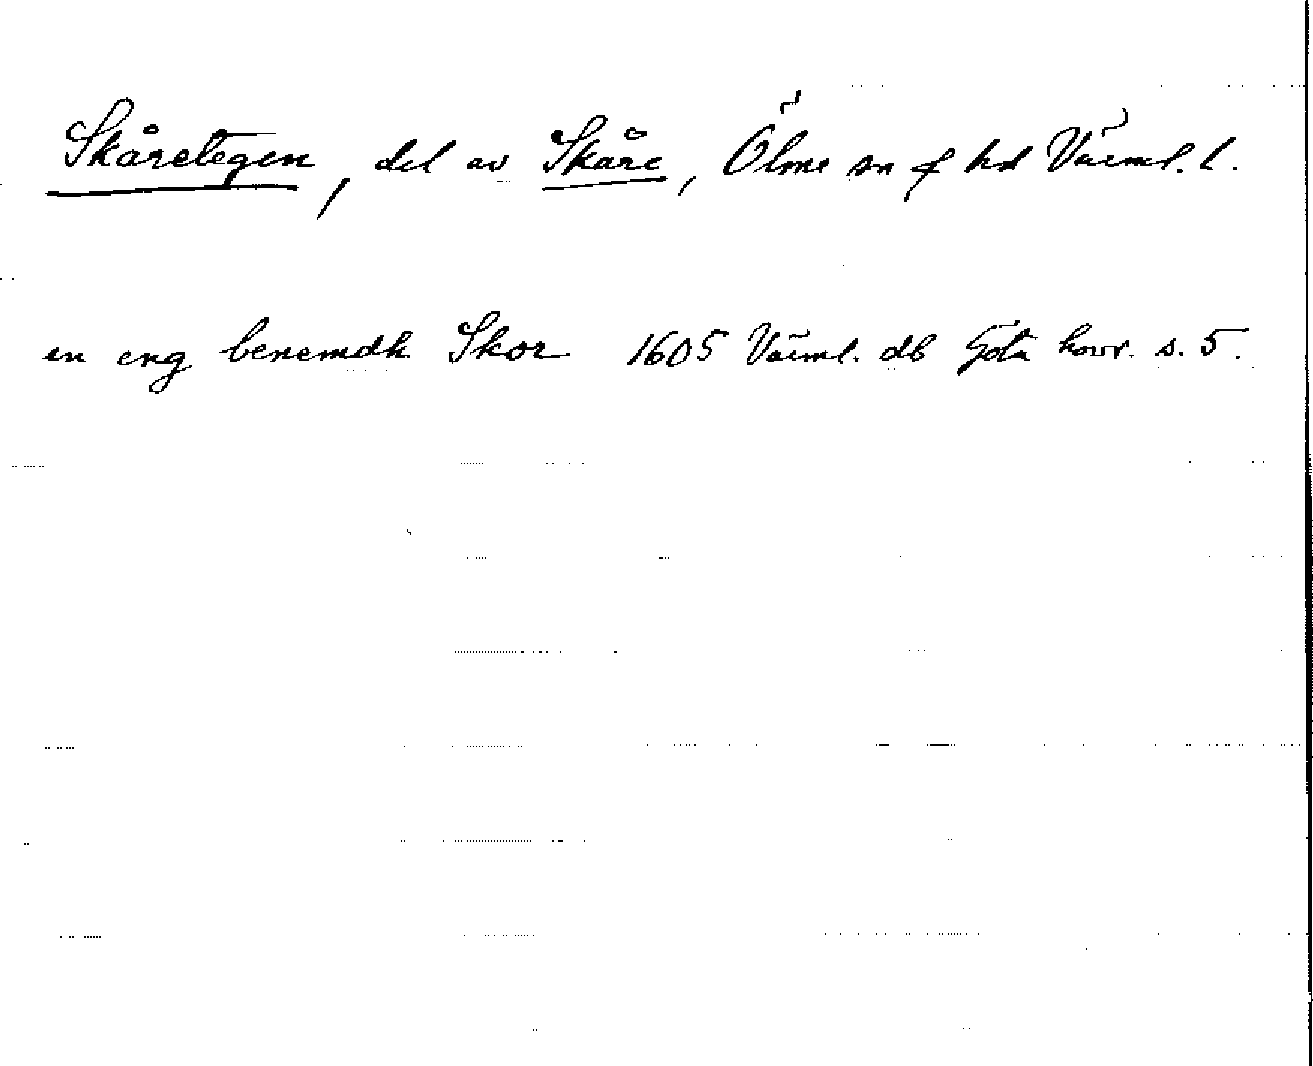 Skåretegen, del av Skåre, Ölme sn & hd Värml. l.
en eng benemdh Skor 1605 Värml. db Göta hovr. s. 5.